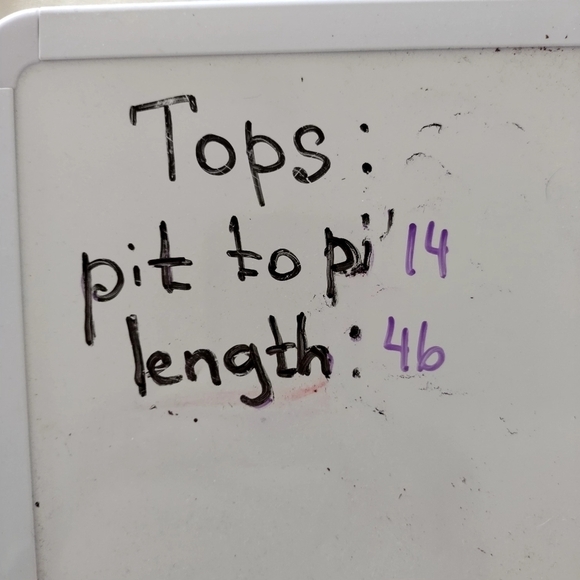 Tops:
pit to pi 14
length: 46